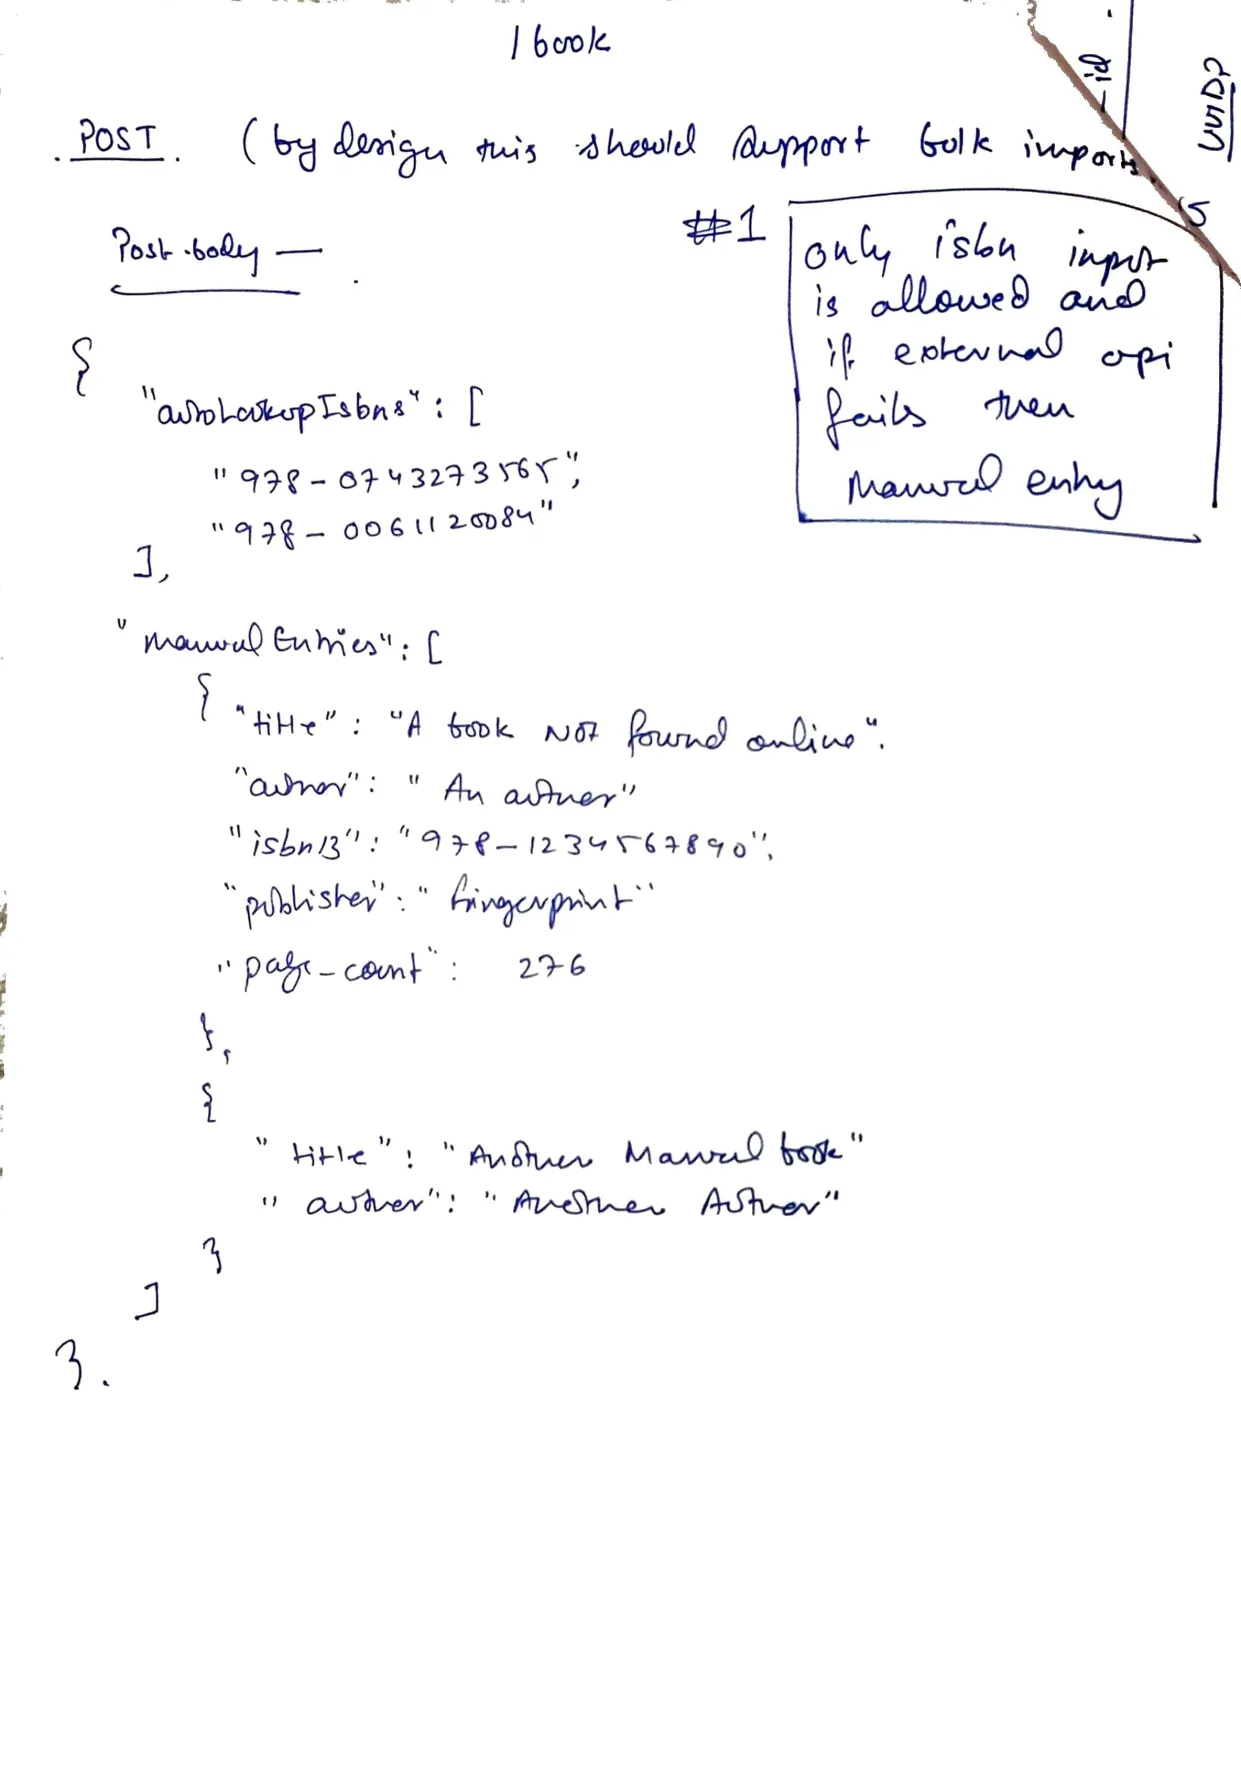 /book
_id
UUID?
POST. (by design this should support bulk imports
Post body —
#1
only isbn input
is allowed and
if external api
fails then
Manual entry
{
"autoLookupIsbns": [
"978-0743273565",
"978-0061120084"
],
"manualEntries": [
{
"title": "A book NOT found online".
"author": "An author"
"isbn13": "978-1234567890",
"publisher": "fingerprint"
"page-count": 276
},
{
"title": "Another Manual book"
"author": "Another Author"
}
]
}.